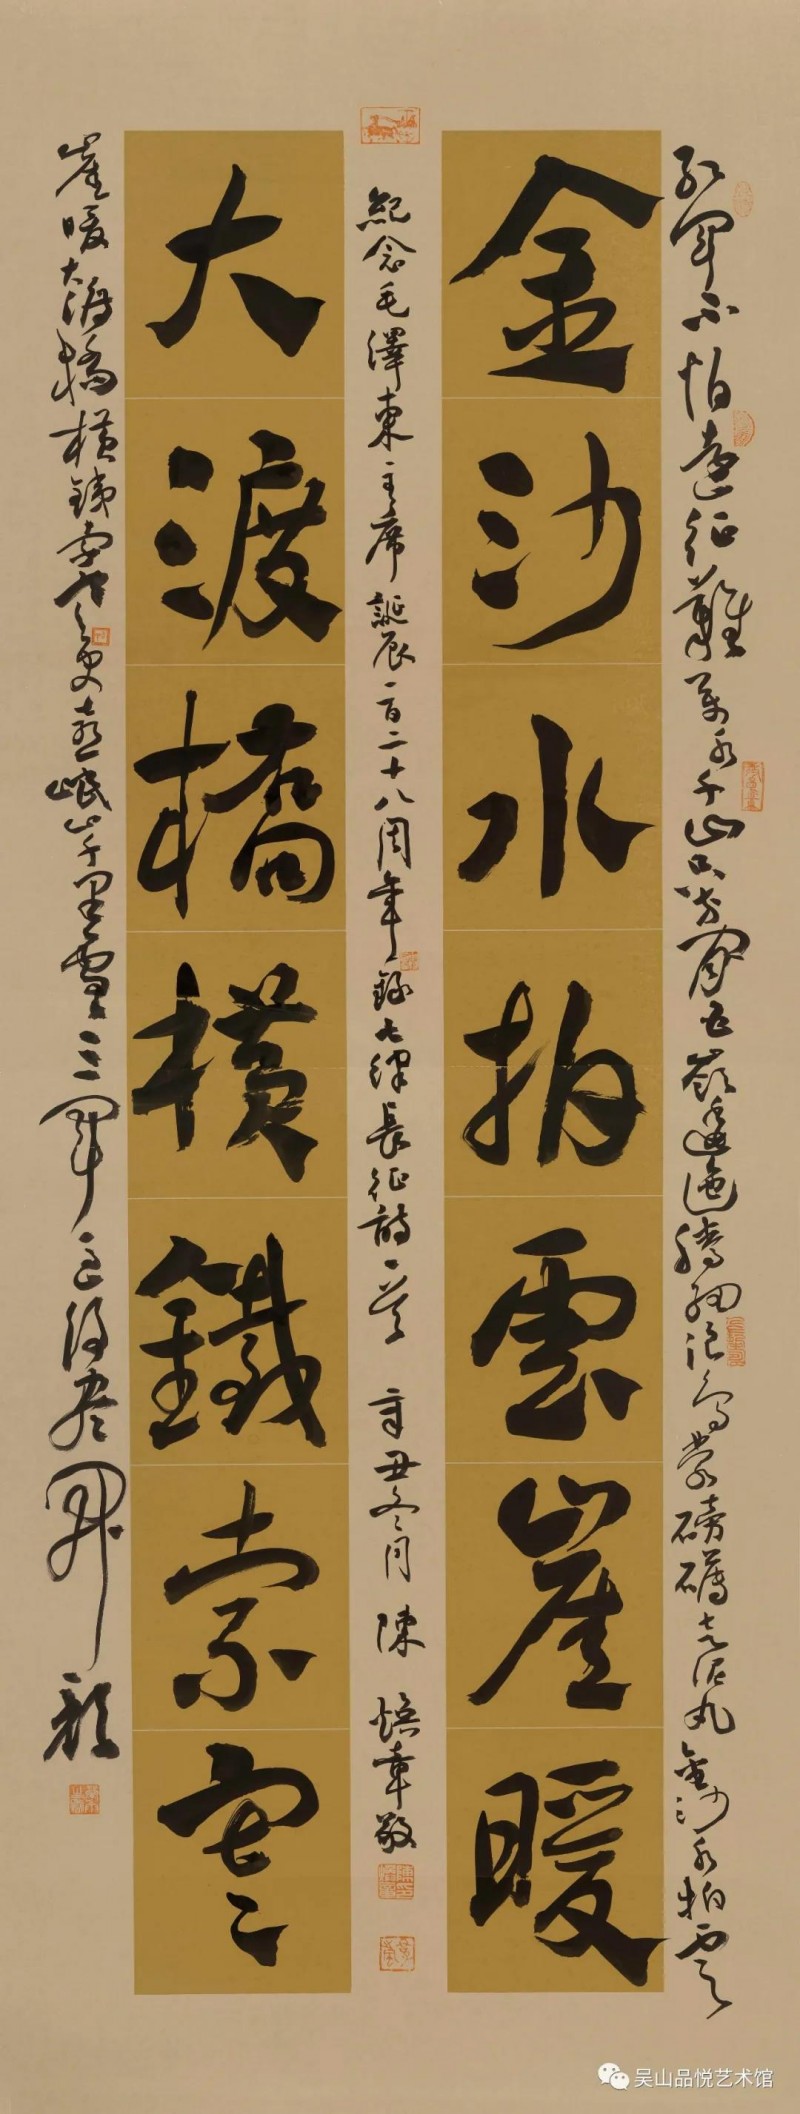 金沙水拍雲崖暖
大渡橋橫鐵索寒
紅軍不怕遠征難萬水千山只等閑五嶺逶迤騰細浪烏蒙磅礴走泥丸金沙水拍雲
崖暖大渡橋橫鐵索寒更喜岷山千里雪三軍過後盡開顏
紀念毛澤東主席誕辰一百二十八周年錄七律長征詩一首 辛丑冬月 陳煥章敬
吴山品悦艺术馆